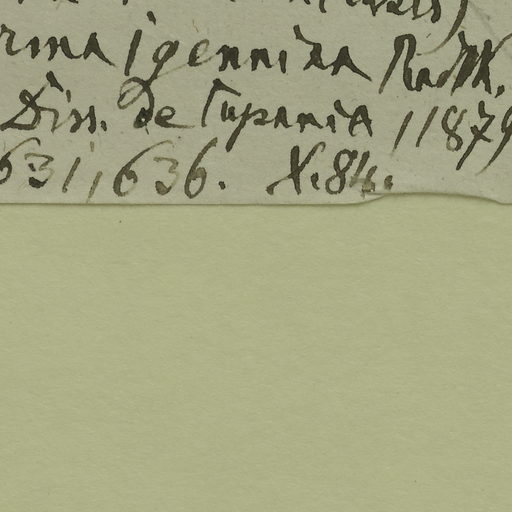 rma igennina Radlk.
Diss. de Cupania 1879
631, 636. X.84.